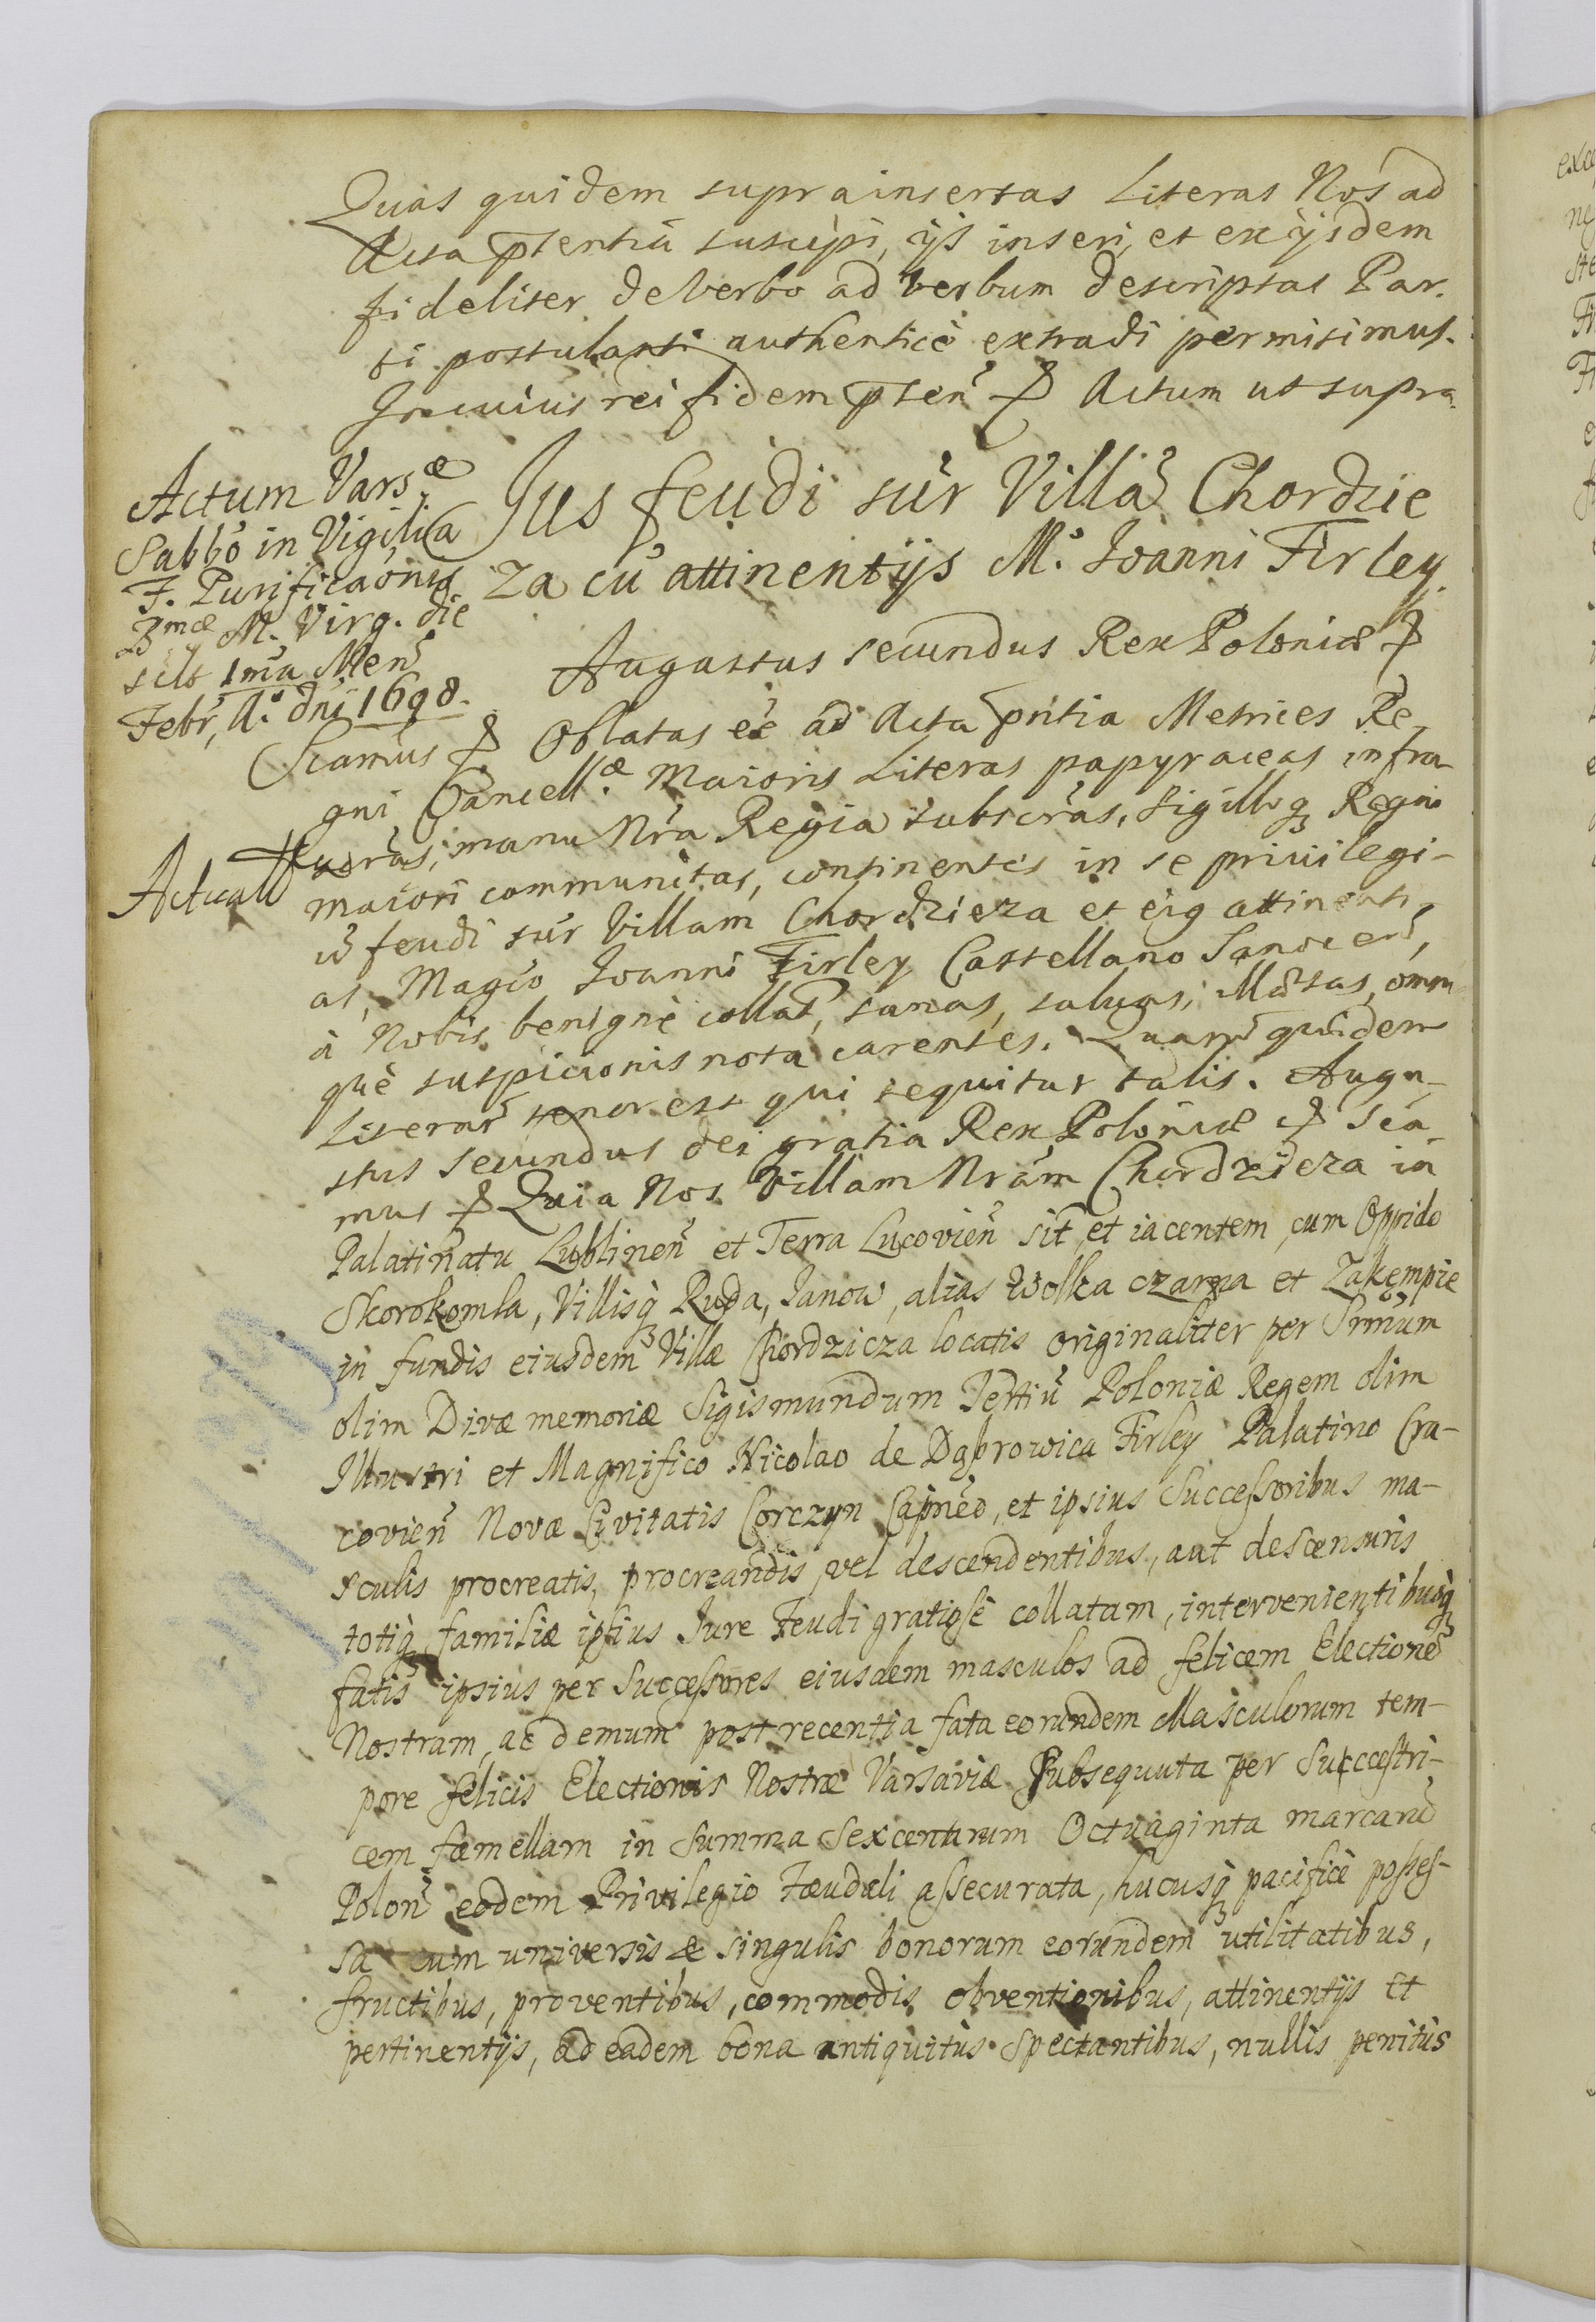 Quas quidem suprainsertas Literas Nos ad
Acta pñtentiũ suscipi, ijs inseri, et ex ijsdem
fideliter de verbo ad verbum descriptas Par-
ti postulanti authenticè extradi permisimus.
In cuius rei fidem pñten̄ Actum ut supra.
Actum Varsæ
Sabbõ in Vigilia
F. Purificaõnis
Bmæ M. Virg. die
scilt 1mã Men̄
Febr, A.º dni 1698.
Jus feudi sũr Villã Chordzie
za cũ attinentijs M.º Joanni Firley.
Augustus secundus Rex Poloniæ
Sčamus Oblatas eẽ ad Acta pñtia Metrices Re-
gni Cancellæ Maioris Literas papyraceas infra
Actuali
manu Nrã Regia subscrãs, sigilloq Regni
maiori communitas, continentes in se privilegi-
ũ feudi sũr Villam Chordzieza et eiq attinenti-
as, Magcõ Joanni Firley Castellano Sanocen̄,
à Nobis benignè collat̄, sanas, salvas, illæsas, omni
què suspicionis nota carentes. Quarũ quidem
Literarũ tenor est qui sequitur talis. Augu-
stus secundus dei gratia Rex Poloniæ Sčã-
mus Quia Nos Villam Nrãm Chordzieza in
Palatinatu Lublinen̄ et Terra Lucovien̄ sit̄ et iacentem, cum Oppido
Skorokomla, Villisq Ruda, Janow, alias Wolka czarna et Zakempie
in fundis eiusdem Villæ Chordzicza locatis originaliter per Srm̃um
olim Divæ memoriæ Sigismundum Tertiũ Poloniæ Regem olim
Illustri et Magnifico Nicolao de Dąbrowica Firley Palatino Cra-
covien̄ Novæ Civitatis Corczyn Capnẽo, et ipsius Successoribus ma-
sculis procreatis, procreandis, vel descendentibus, aut descensuris
totiq familiæ ipsius Jure Feudi gratiosè collatam, intervenientibusq
fatis ipsius per Successores eiusdem masculos ad felicem Electionẽ
Nostram, ac demum post recentia fata eorundem Masculorum tem-
pore felicis Electionis Nostræ Varsaviæ Subsequuta per Succestri-
cem fæmellam in Summa Sexcentarum Octuaginta marcarũ
Polon̄ eodem Privilegio Fæudali assecurata, hucusq pacificè posses-
sa cum universis & singulis bonorum eorundem utilitatibus,
fructibus, proventibus, commodis, obventionibus, attinentijs et
pertinentijs, ad eadem bona antiquitùs spectantibus, nullis penitùs